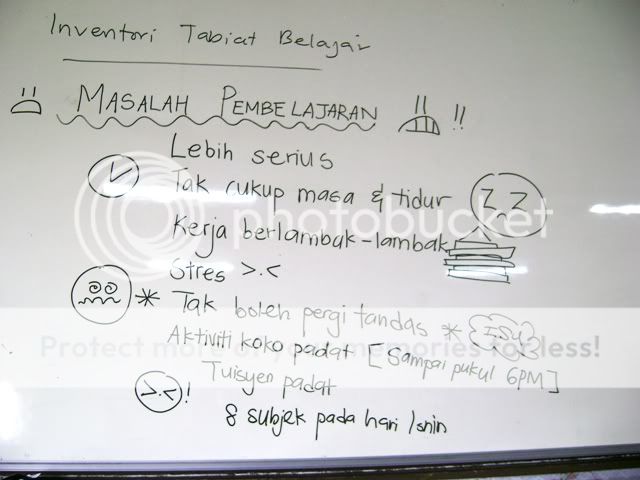 Inventori Tabiat Belajar
MASALAH PEMBELAJARAN !!
Lebih serius
Tak cukup masa & tidur Z Z
Kerja berlambak-lambak
Stres >.<
* Tak boleh pergi tandas * {ISU}
Aktiviti koko padat [Sampai pukul 6PM]
Tuisyen padat
>.< !
8 subjek pada hari Isnin
photobucket
Protect more of your memories for less!